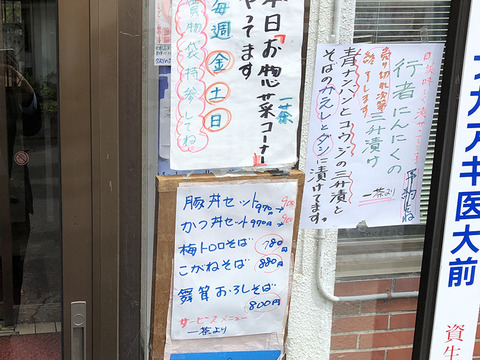 本日お惣菜コーナー
やってます。 一茶
毎週金土日
買物袋持参してね
行者にんにくの
三升漬け
売り切れ次第
終了します。
一茶より
青ナンバンとコウジの三升漬と
そばのかえしとダシに漬けてます。
豚丼セット 970→900
かつ丼セット 970円→900
梅トロロそば 780円
こがねそば 880円
舞茸おろしそば
800円
サービスメニュー
一茶より
アキ医大前
資生